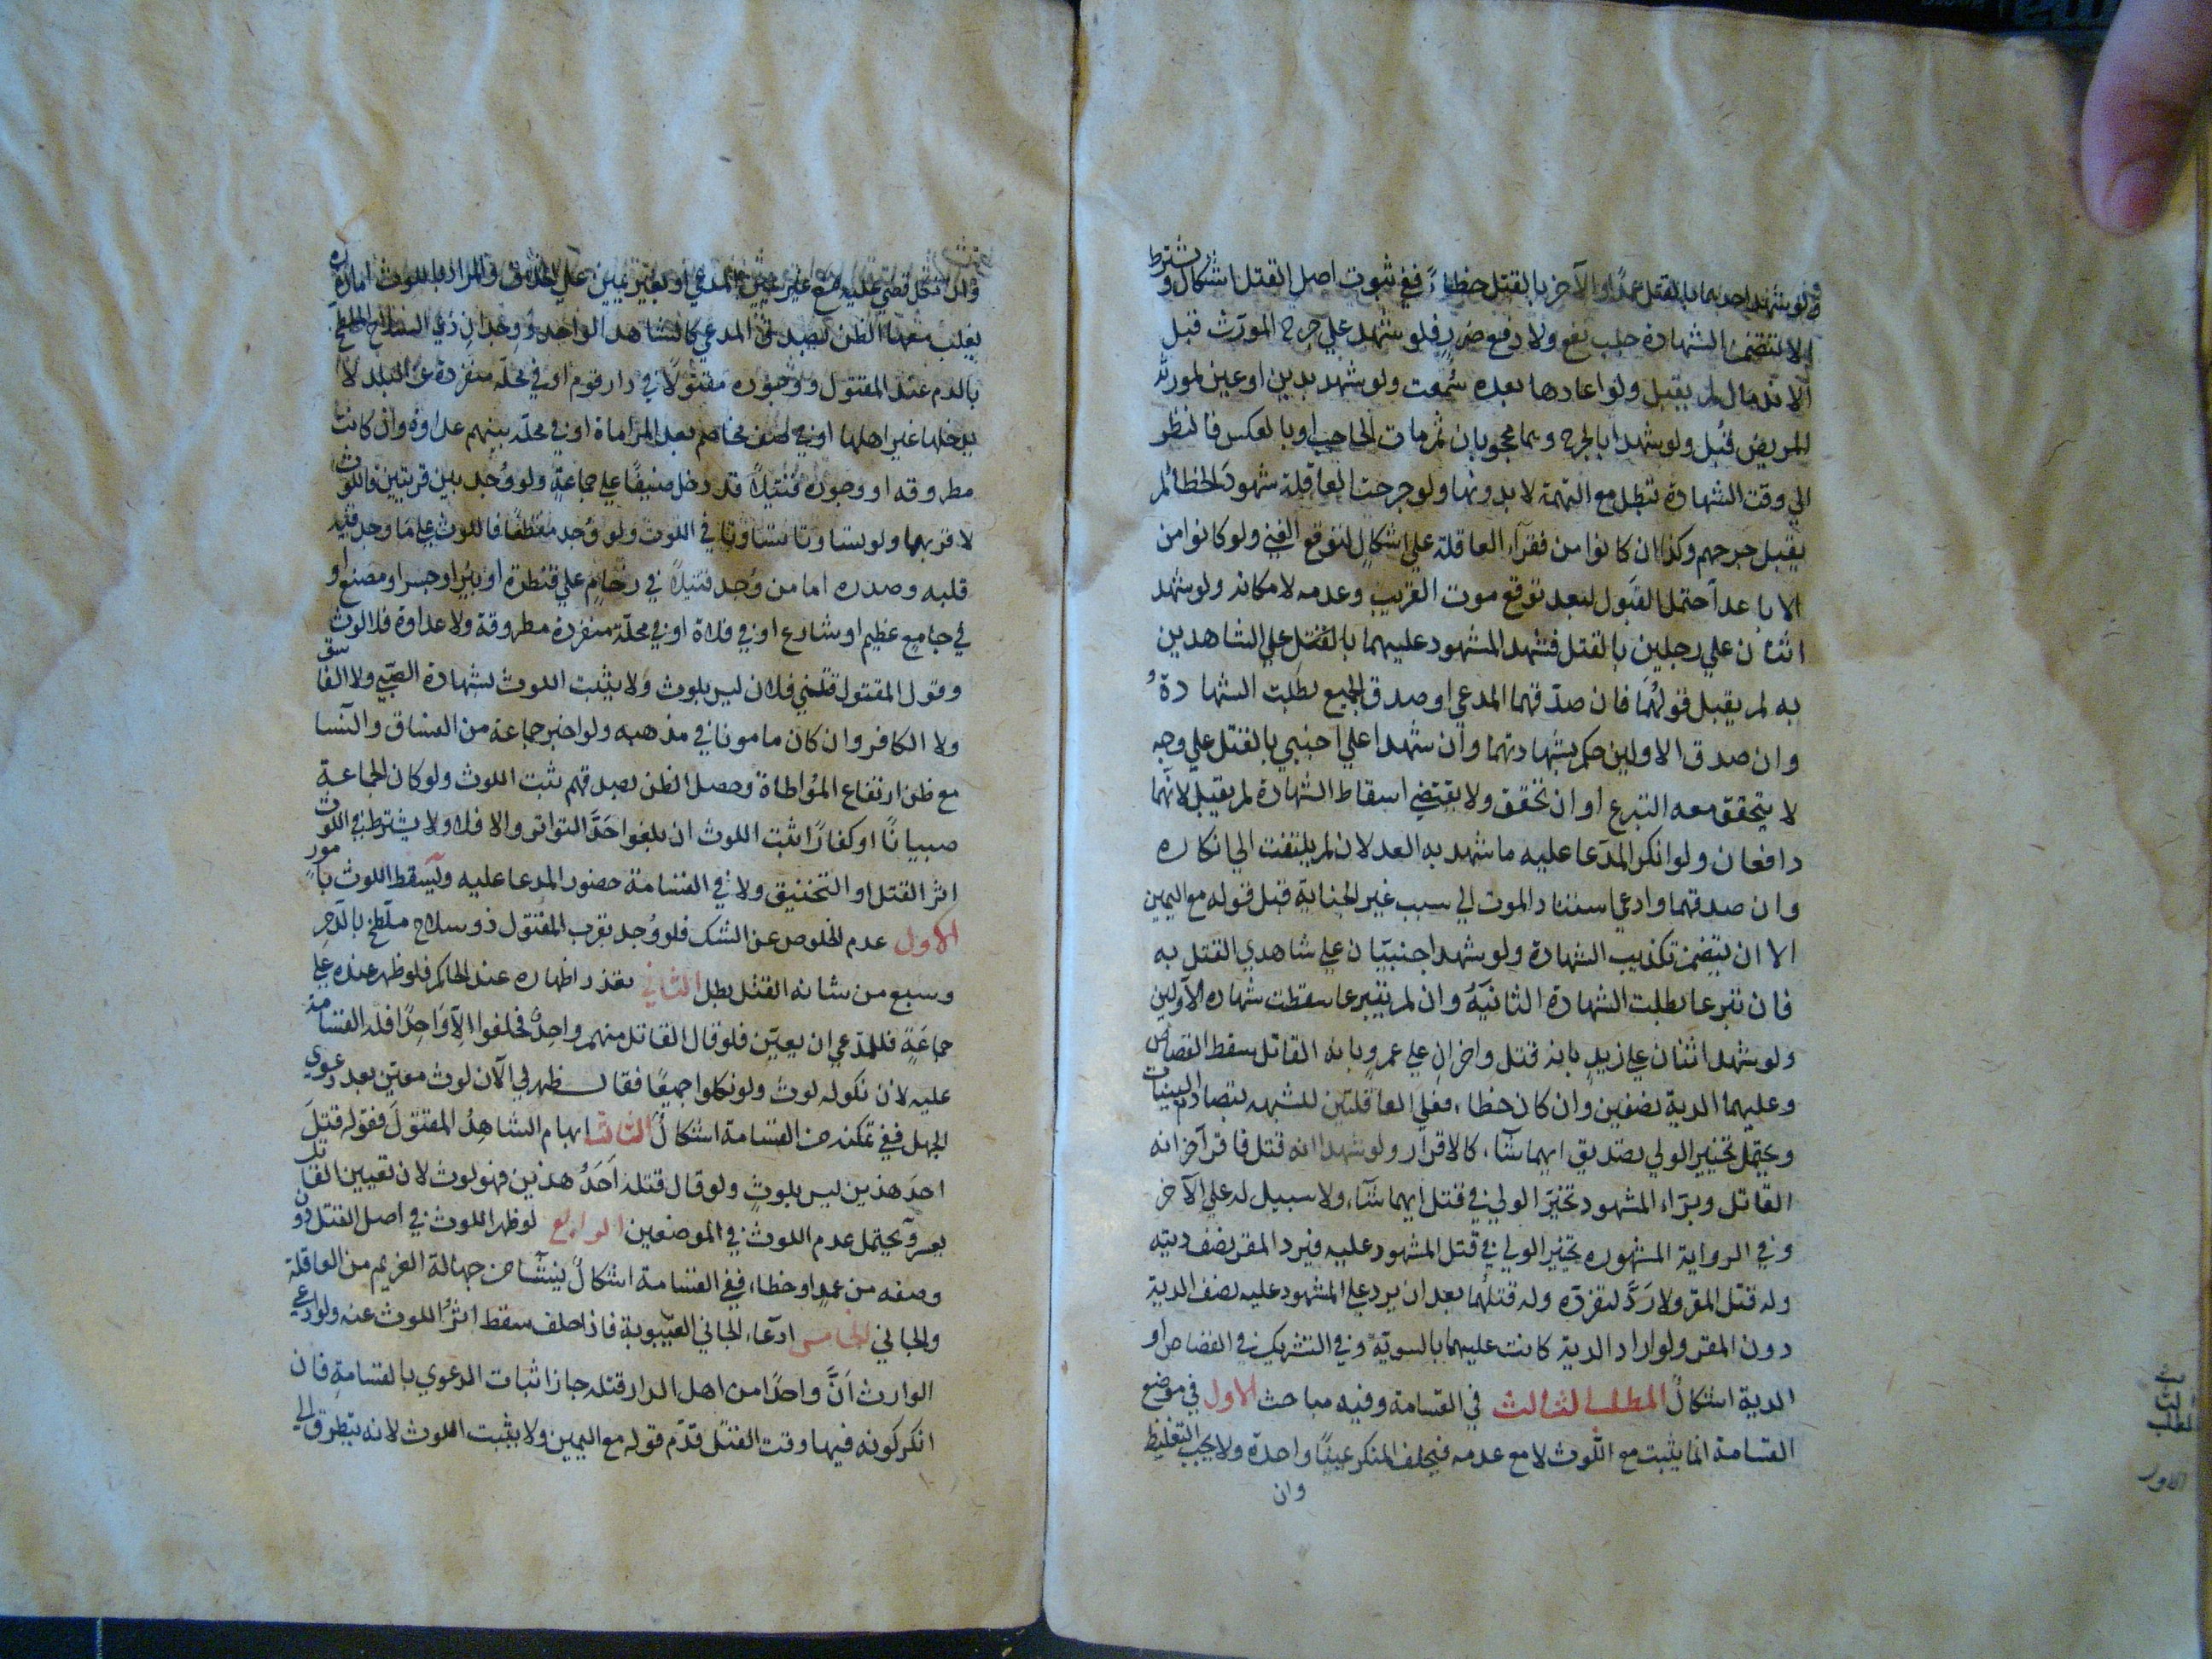 ولو شهد احدهما بالقتل عمدًا والآخر بالقتل خطاءً ففي ثبوت اصل القتل اشكال ويشترط
ان لا تتضمن الشهادة جلب نفع ولا دفع ضررٍ فلو شهد علي جرح المورث قبل
الاندمال لم يقبل ولو اعادها بعده سُمعت ولو شهد بدين او عين لمورثه
المريض قُبل ولو شهدا بالجرح وهما محجوبان ثم مات الحاجب او بالعكس فالنظر
الي وقت الشهادة تبطل مع التهمة لا بدونها ولو جرحت العاقلة شهودَ الخطا لم
يقبل جرحهم وكذا ان كانوا من فقرآء العاقلة علي اشكالٍ لتوقع الغني ولو كانوا من
الاباعد احتمل القبول لبعد توقع موت القريب وعدمه لامكانه ولو شهد
اثنان علي رجلين بالقتل فشهد المشهود عليهما بالقتل علي الشاهدين
به لم يقبل قولُهما فان صدّقهما المدعي او صدق الجميع بطلت الشهادةُ
وان صدق الاولين حكم بشهادتهما وان شهدا علي اجنبي بالقتل علي وجه
لا يتحقق معه التبرع او ان تحقق ولا يقتضي اسقاط الشهادة لم تقبل لانّهما
دافعان ولو انكر المدّعا عليه ما شهد به العدلان لم يلتفت الي انكاره
وان صدقهما وادعي استناد الموت الي سبب غير الجناية قبل قوله مع اليمين
الا ان يتضمن تكذيب الشهادة ولو شهد اجنبيّان علي شاهدي القتل به
فان تبرعا بطلت الشهادة الثانيَةُ وان لم يتبرعا سقطت شهاده الاولين
ولو شهد اثنان علي زيدٍ بانه قتل واخرانِ علي عمروٍ بانه القاتل سقط القصاص
وعليهما الدية نصفين وان كان خطاء، فعلي العاقلتين للشبهه بتصادم البينات
ويحتمل تخيير الولي بتصديق ايهما شآء، كالاقرار ولو شهدا انه قتل فاقر آخر انه
القاتل وبرّاء المشهود تخيّر الولي في قتل ايهما شآء، ولا سبيل له علي الآخر
وفي الرواية المشهوره تخيير الولي في قتل المشهود عليه فيرد المقر نصف ديته
وله قتل المقر ولا رَدَّ لتفرّده وله قتلُهما بعد ان يرد علي المشهود عليه نصف الدية
دون المقر ولو اراد الدية كانت عليهما بالسويّة وفي التشريك في القصاص او
الدية اشكالٌ المطلب الثالث في القسامة وفيه مباحث الاول في موضع
القسامة انما يثبت مع اللوث لا مع عدمه فيحلف المنكر يمينًا واحدة ولا يجب التغليظ
وان
وان نكل قضي عليه والمراد باللوث امارة
يغلب معها الظن بصدق المدعي كالشاهد الواحد ووجدانِ ذي السلاح الملطخ
بالدم عند المقتول ووجوده مقتولًا في دار قوم او في محلّة منفردة عن البلد لا
يدخلها غير اهلها او في صف مخاصم بعد المراماة او في محلّة بينهم عداوة وان كانت
مطروقه او وجوده قتيلًا قد دخل ضيفًا علي جماعةٍ ولو وُجد بين قريتين فاللوث
لاقربهما ولو تساوتا تساوتا في اللوث ولو وُجد مقطعًا فاللوث علي مَا وجد فيه
قلبه وصدره اما من وُجد قتيلًا في زحامٍ علي قنطرة او بئر او جسر او مصنع او
في جامعٍ عظيم او شارع او في فلاة او في محلّة منفردة مطروقة ولا عداوة فلا لوث
وقول المقتول قتلني فلان ليس بلوث ولا يثبت اللوث بشهادة الصّبي ولا الفاسق
ولا الكافر وان كان مامونا في مذهبه ولو اخبر جماعة من الفساق والنسا
مع ظن ارتفاع المُواطاة وحصل الظن بصدقهم ثبت اللوث ولو كان الجماعة
صبيانًا او كفارًا ثبت اللوث ان بلغوا حَدَّ التواتر والا فلا ولا يشترط في اللوث
اثر القتل او التخنيق ولا في القسامة حضور المدعا عليه ويسقط اللوث بامور
الاول عدم الخلوص عن الشك فلو وُجد بقرب المقتول ذو سلاح ملطّخ بالدم
وسبع من شانه القتل بطل الثاني تعذر اظهاره عند الحاكم فلو ظهر عنده علي
جماعَةٍ فللمدّعي ان يعيّن فلو قال القاتل منهم واحدٌ فحلفوا الآ وَاحدًا فله القسامة
عليه لان نكوله لوث ولو نكلوا جميعًا فقال ظهر لي الآن لوث معيّن بعد دعوي
الجهل ففي تمكنه من القسامة اشكالٌ الثالث ابهام الشاهدُ المقتولَ فقوله قتلَ
احدَ هذين ليس بلوثٍ ولو قال قتله اَحَدُ هذين فهو لوث لان تعيين القاتل
يعسر ويحتمل عدم اللوث في الموضعين الرابع لو ظهر اللوث في اصل القتل دون
وصفه من عمدٍ او خطاء، ففي القسامة اشكالٌ ينشآ من جهالة الغريم من العاقلة
والجاني الخامس ادّعاء، الجاني الغيبوبة فاذا حلف سقط اثرُ اللوث عنه ولو ادعي
الوارث اَنَّ واحدًا من اهل الدار قتله جاز اثبات الدعوي بالقسامةِ فان
انكر كونه فيها وقت القتل قدّم قوله مع اليمين ولا يثبت اللوث لانه يتطرق الي